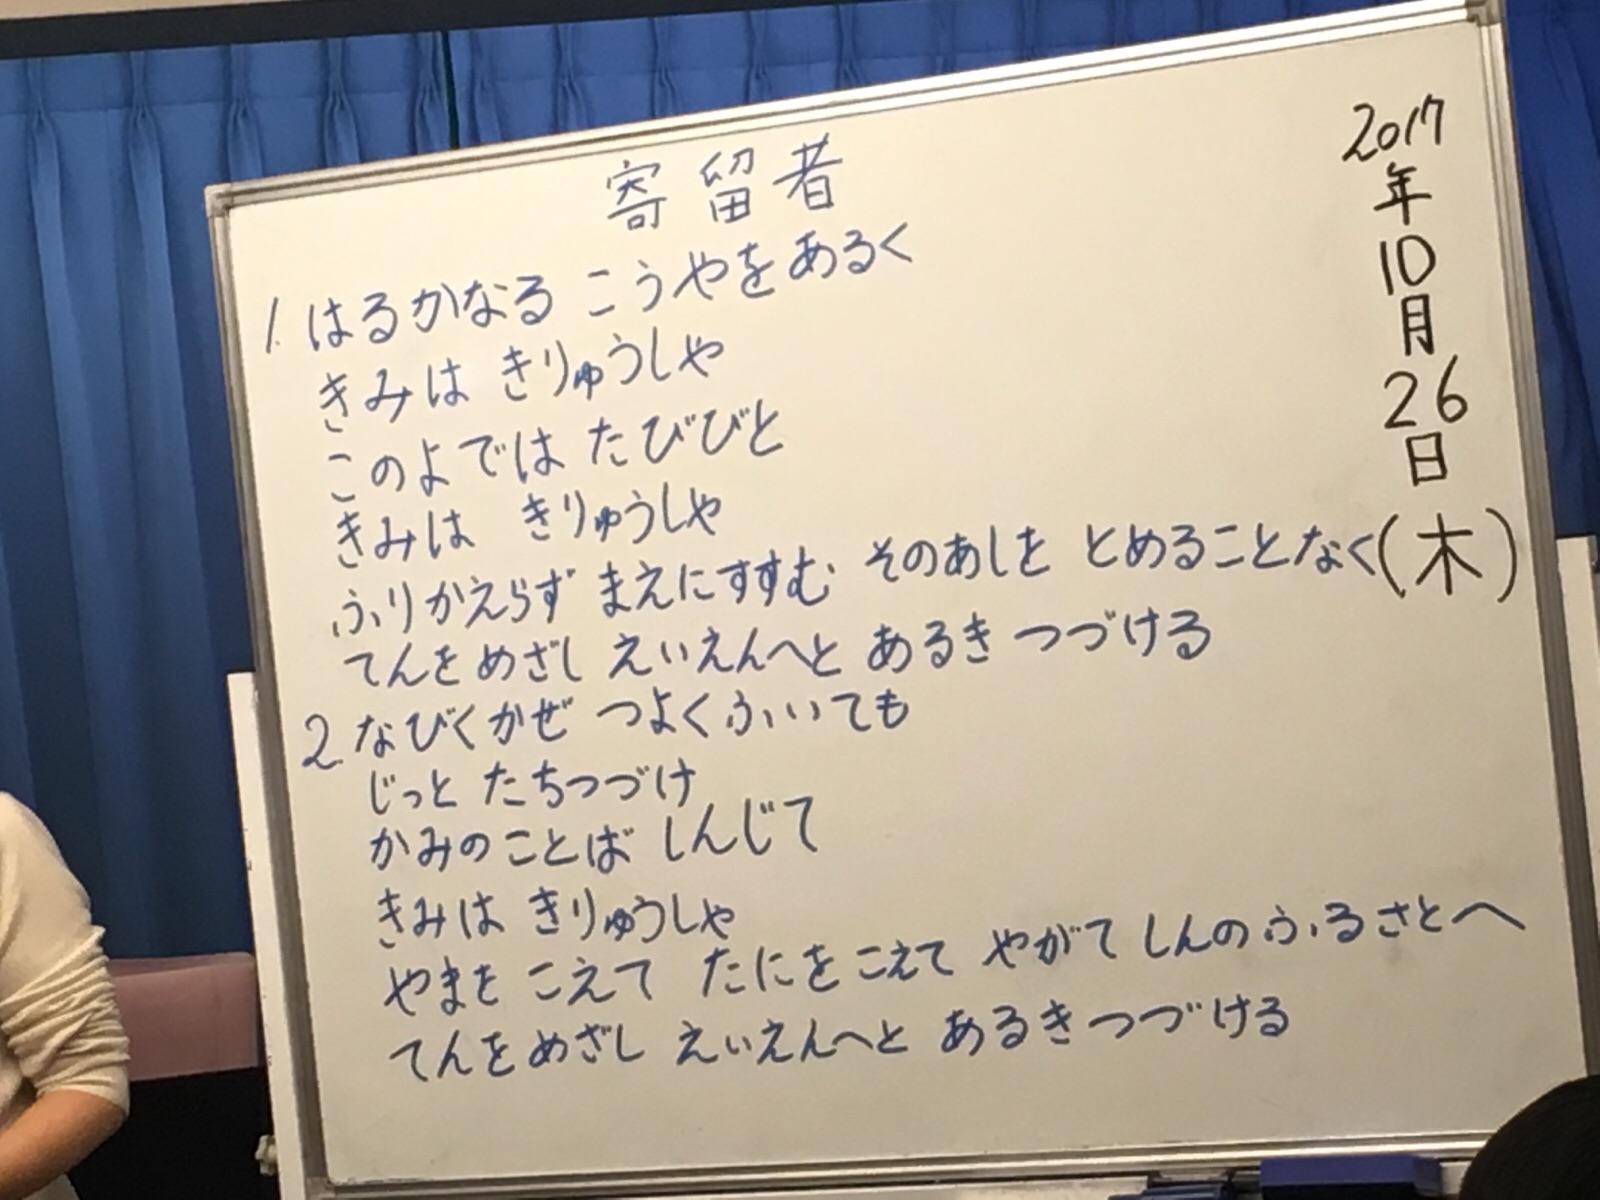 寄留者
1. はるかなる こうやをあるく
きみは きりゅうしゃ
このよでは たびびと
きみは きりゅうしゃ
ふりかえらず まえにすすむ そのあしを とめることなく
てんをめざし えいえんへと あるき つづける
2. なびくかぜ つよくふいても
じっと たちつづけ
かみのことば しんじて
きみは きりゅうしゃ
やまを こえて たにをこえて やがて しんのふるさとへ
てんをめざし えいえんへと あるきつづける
2017
年
10
月
26
日
(木)